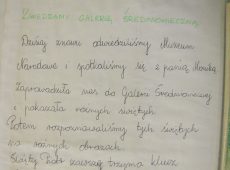 ZWIEDZAMY GALERIĘ ŚREDNIOWIECZNĄ
Dzisiaj znowu odwiedziliśmy Muzeum
Narodowe i spotkaliśmy się z panią Moniką
Zaprowadziła nas do Galerii Średniowiecznej
i pokazała różnych świętych
Potem rozpoznawaliśmy tych świętych
na różnych obrazach
Święty Piotr zawsze trzyma klucz